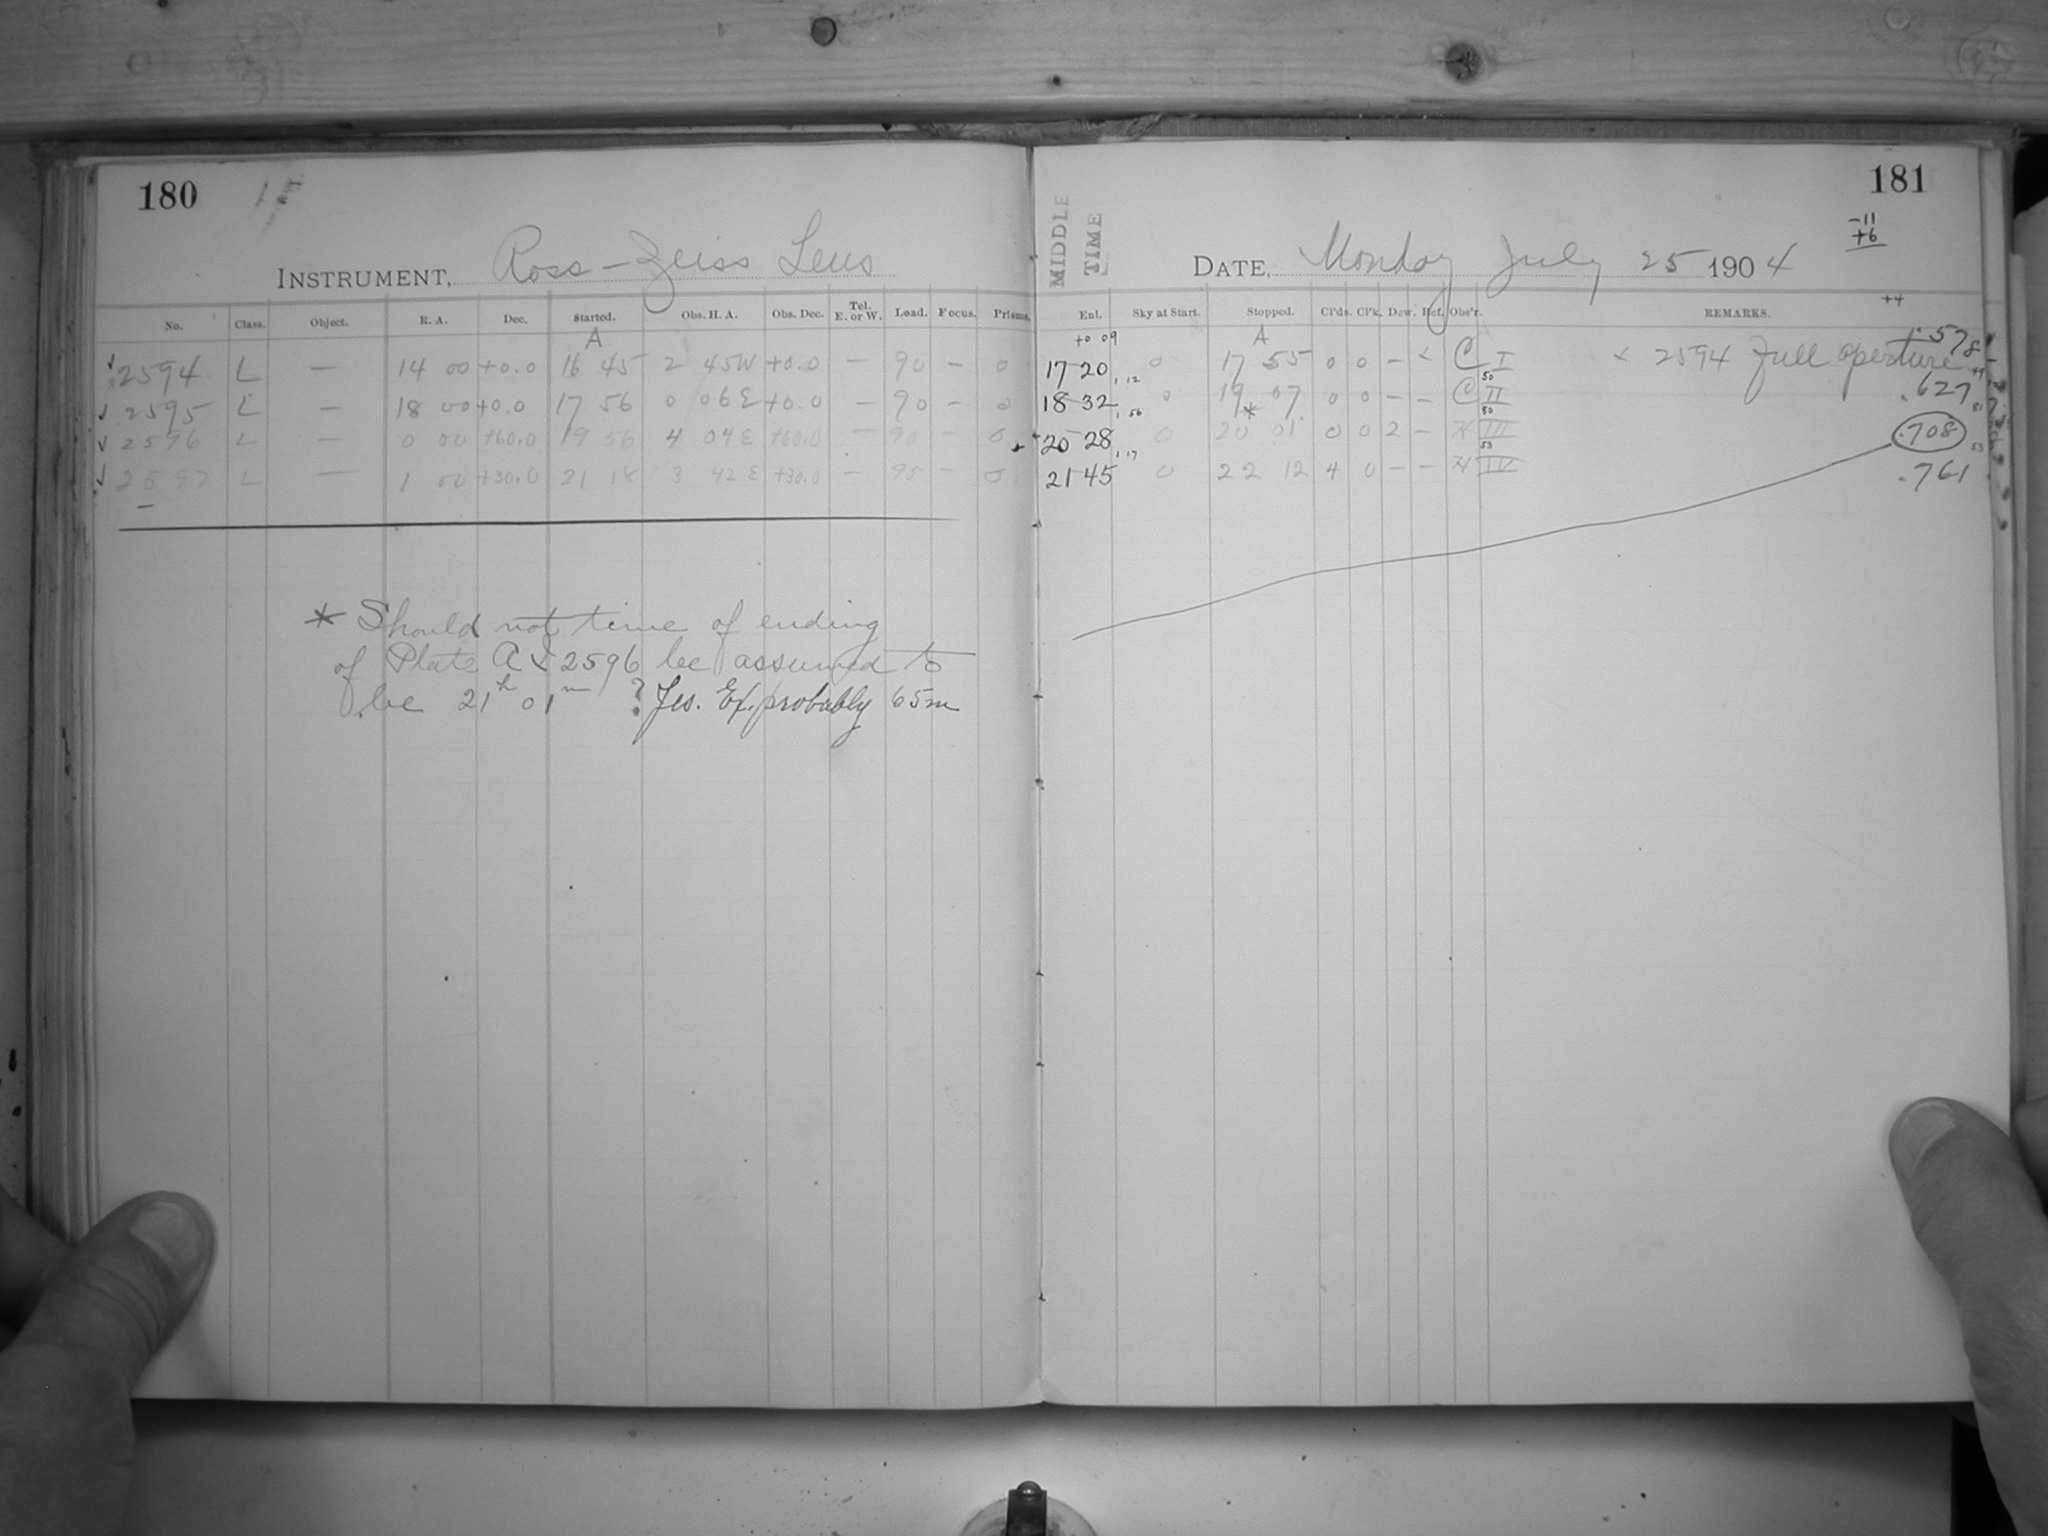 180
INSTRUMENT, Ross-Zeiss Lens
No. Class. Object. R. A. Dec. Started. Obs. H. A. Obs. Dec. Tel. E. or W. Load. Focus. Prisms.
A
2594 L — 14 00 +0.0 16 45 2 45W +0.0 — 90 — 0
2595 L — 18 00 +0.0 17 56 0 06E +0.0 — 90 — 0
2596 L — 0 00 +60.0 19 56 4 04E +60.0 — 90 — 0
2597 L — 1 00 +30.0 21 18 3 42E +30.0 — 90 — 0
* Should not time of ending
of Plate A & 2596 be assumed to
be 21h 01m ? Yes. Ex. probably 65m
181
-11
+6
MIDDLE
TIME
DATE, Monday July 25 1904
+4
Ent. Sky at Start. Stopped. Cl'ds. Cl'k. Dew. Ref. Obs'r. REMARKS.
+0 09 A
17 20 0 17 55 0 0 — × C I × 2594 Full aperture .578
18 32 0 19 07 0 0 — — C II .627
20 28 0 20 01 * 0 0 2 — III .708
21 45 0 22 12 4 0 — — IV .761